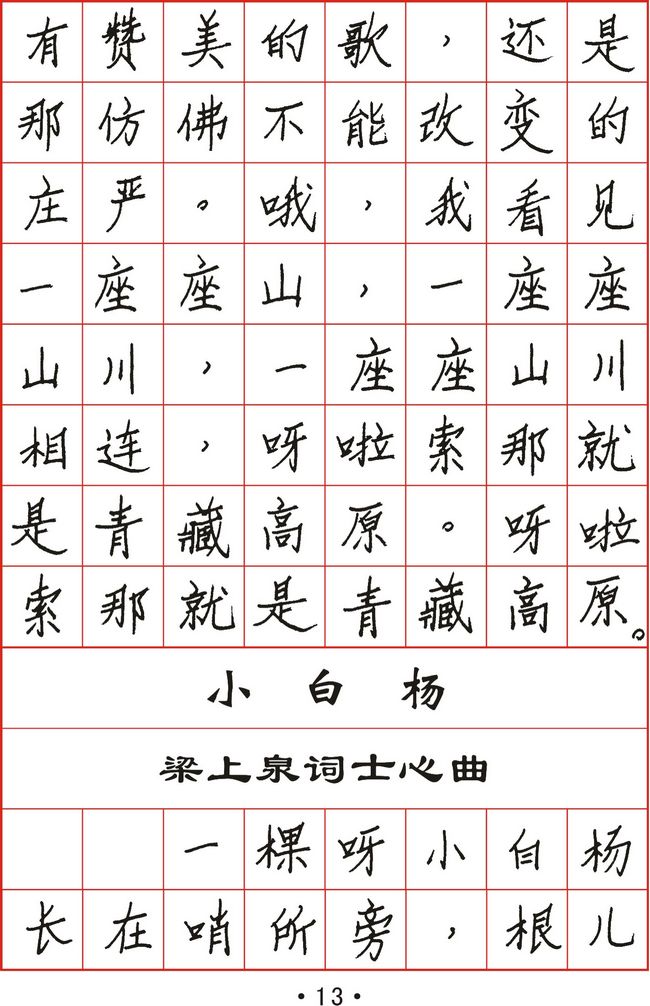 有赞美的歌，还是
那仿佛不能改变的
庄严。哦，我看见
一座座山，一座座
山川，一座座山川
相连，呀啦索那就
是青藏高原。呀啦
索那就是青藏高原。
小白杨
梁上泉词士心曲
一棵呀小白杨
长在哨所旁，根儿
·13·